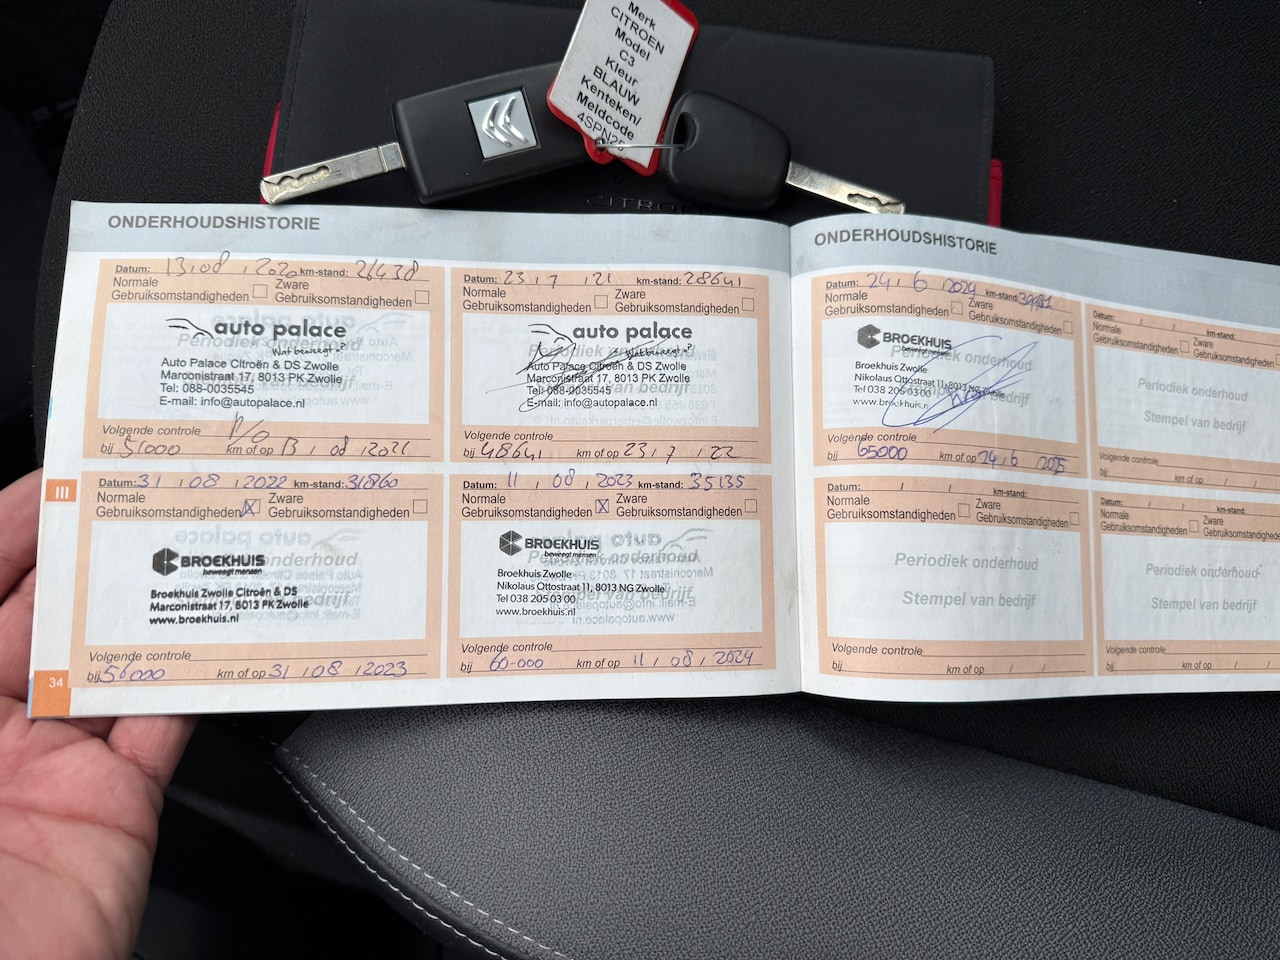 Merk
CITROEN
Model
C3
Kleur
BLAUW
Kenteken/
Meldcode
CITROËN
ONDERHOUDSHISTORIE
Datum: 13.08.2020 km-stand: 26438
Normale Gebruiksomstandigheden Zware Gebruiksomstandigheden
auto palace
Wat beweegt u?
Auto Palace Citroën & DS Zwolle
Marconistraat 17, 8013 PK Zwolle
Tel: 088-0035545
E-mail: info@autopalace.nl
Volgende controle
bij 51000 km of op 13/08/2021
Datum: 23/7/21 km-stand: 28641
Normale Gebruiksomstandigheden Zware Gebruiksomstandigheden
auto palace
Wat beweegt u?
Auto Palace Citroën & DS Zwolle
Marconistraat 17, 8013 PK Zwolle
Tel: 088-0035545
E-mail: info@autopalace.nl
Volgende controle
bij 48641 km of op 23/7/22
III
Datum: 31/08/2022 km-stand: 31860
Normale Gebruiksomstandigheden X Zware Gebruiksomstandigheden
BROEKHUIS
beweegt mensen
Broekhuis Zwolle Citroën & DS
Marconistraat 17, 8013 PK Zwolle
www.broekhuis.nl
Volgende controle
bij 56000 km of op 31/08/2023
Datum: 11/08/2023 km-stand: 35135
Normale Gebruiksomstandigheden X Zware Gebruiksomstandigheden
BROEKHUIS
beweegt mensen
Periodiek onderhoud
Broekhuis Zwolle
Nikolaus Ottostraat 11, 8013 NG Zwolle
Tel 038 205 03 00
www.broekhuis.nl
Volgende controle
bij 60-000 km of op 11/08/2024
34
ONDERHOUDSHISTORIE
Datum: 24/6/2024 km-stand:
Normale Gebruiksomstandigheden Zware Gebruiksomstandigheden
BROEKHUIS
beweegt mensen
Periodiek onderhoud
Broekhuis Zwolle
Nikolaus Ottostraat 11, 8013 NG Zwolle
Tel 038 205 03 00
www.broekhuis.nl
Volgende controle
bij 65000 km of op 24/6/2025
Datum: / / km-stand:
Normale Gebruiksomstandigheden Zware Gebruiksomstandigheden
Periodiek onderhoud
Stempel van bedrijf
Volgende controle
bij km of op / /
Datum: / / km-stand:
Normale Gebruiksomstandigheden Zware Gebruiksomstandigheden
Periodiek onderhoud
Stempel van bedrijf
Volgende controle
bij km of op / /
Datum: / / km-stand:
Normale Gebruiksomstandigheden Zware Gebruiksomstandigheden
Periodiek onderhoud
Stempel van bedrijf
Volgende controle
bij km of op / /